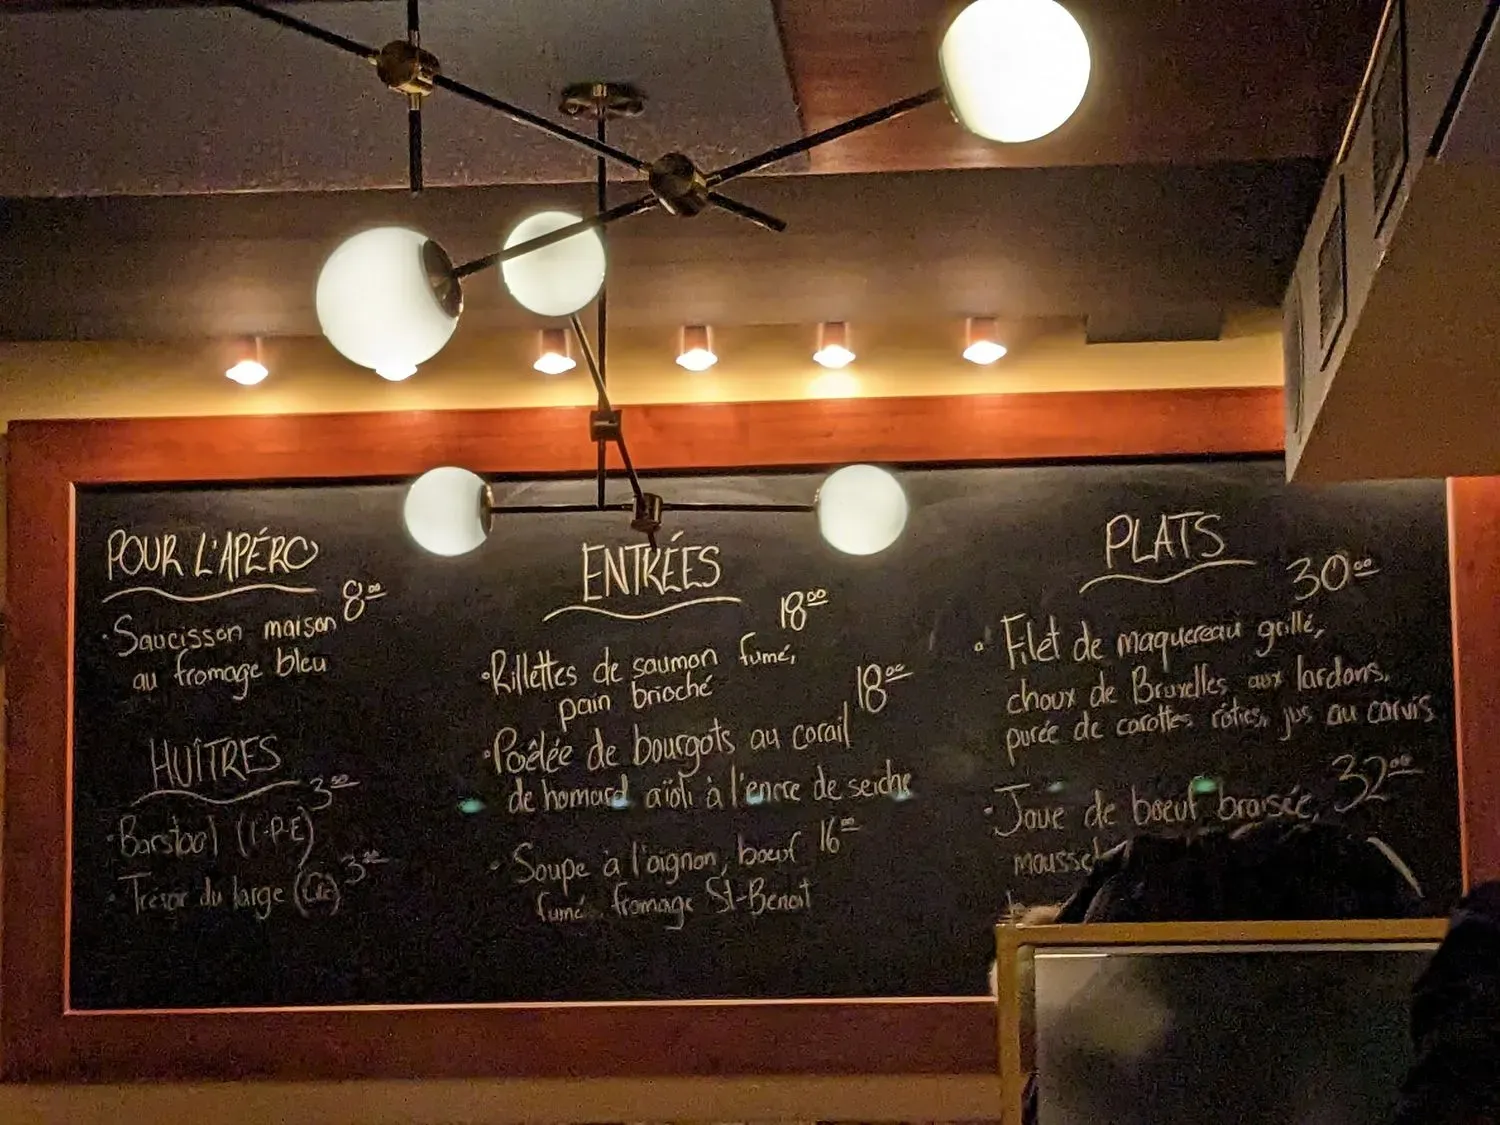 POUR L'APÉRO
8.00
· Saucisson maison
au fromage bleu
HUÎTRES
3.50
· Barstool (I-P-E)
3.50
· Trésor du large
ENTRÉES
18.00
· Rillettes de saumon fumé,
pain brioché
18.00
· Poêlée de bourgots au corail
de homard aïoli à l'encre de seiche
16.00
· Soupe à l'oignon, boeuf
fumé, fromage St-Benoit
PLATS
30.00
· Filet de maquereau grillé,
choux de Bruxelles aux lardons,
purée de carottes rôties, jus au carvis
32.00
· Joue de boeuf braisée,